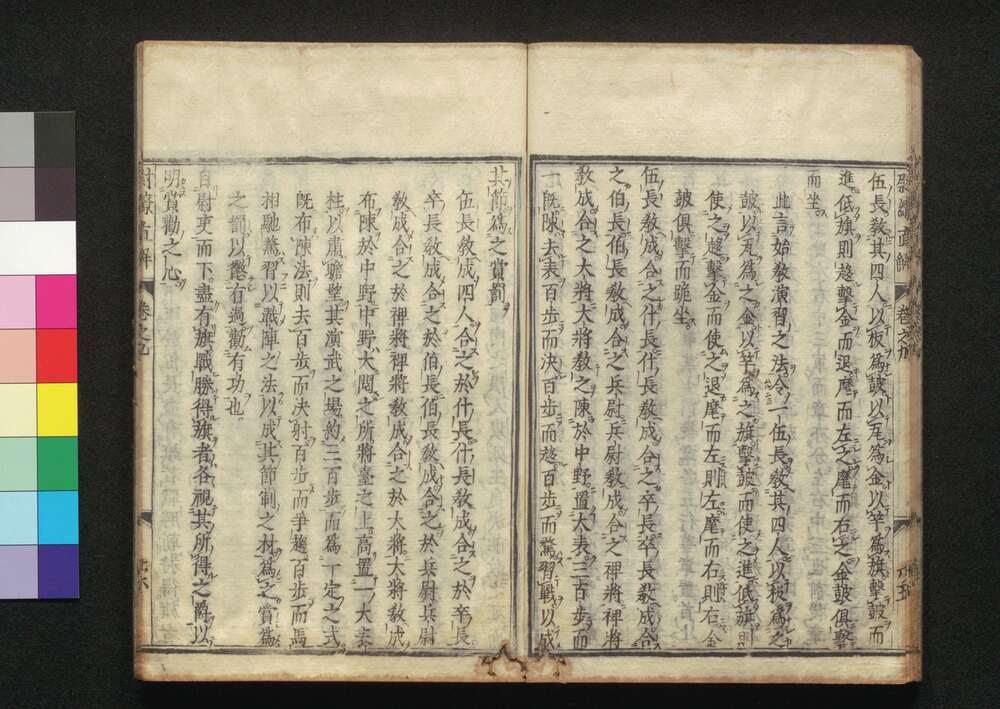 尉繚直解 卷之九
伍長敎其四人以板爲鼓以瓦爲金以竿爲旗擊鼓而
進低旗則趨擊金而退麾而左之麾而右之金鼓俱擊
而坐。
此言始敎演習之法令一伍長敎其四人以板爲之
鼓以瓦爲之金以竿爲之旗擊鼓而使之進低旗則
使之趨擊金而使之退麾而左則左麾而右則右金
鼓俱擊而跪坐。
伍長敎成合之什長什長敎成合之卒長卒長敎成合
之伯長伯長敎成合之兵尉兵尉敎成合之裨將裨將
敎成合之大將大將敎之陳於中野置大表三百步而
一既陳去表百步而決百步而趨百步而騖習戰以成
其節爲之賞罰
伍長敎成四人合之於什長什長敎成合之於卒長
卒長敎成合之於伯長伯長敎成合之於兵尉兵尉
敎成合之於裨將裨將敎成合之於大將大將敎成
布陳於中野中野大閱之所將臺之上高置一大表
柱以肅瞻望其演武之場約三百步而爲一定之式
既布陳法則去百步而決射百步而爭趨百步而馬
相馳騖習以戰陣之法以成其節制之材爲之賞爲
之罰以懲有過勸有功也。
自尉吏而下盡有旗戰勝得旗者各視其所得之爵以
明賞勸之心
尉繚直解 卷之九